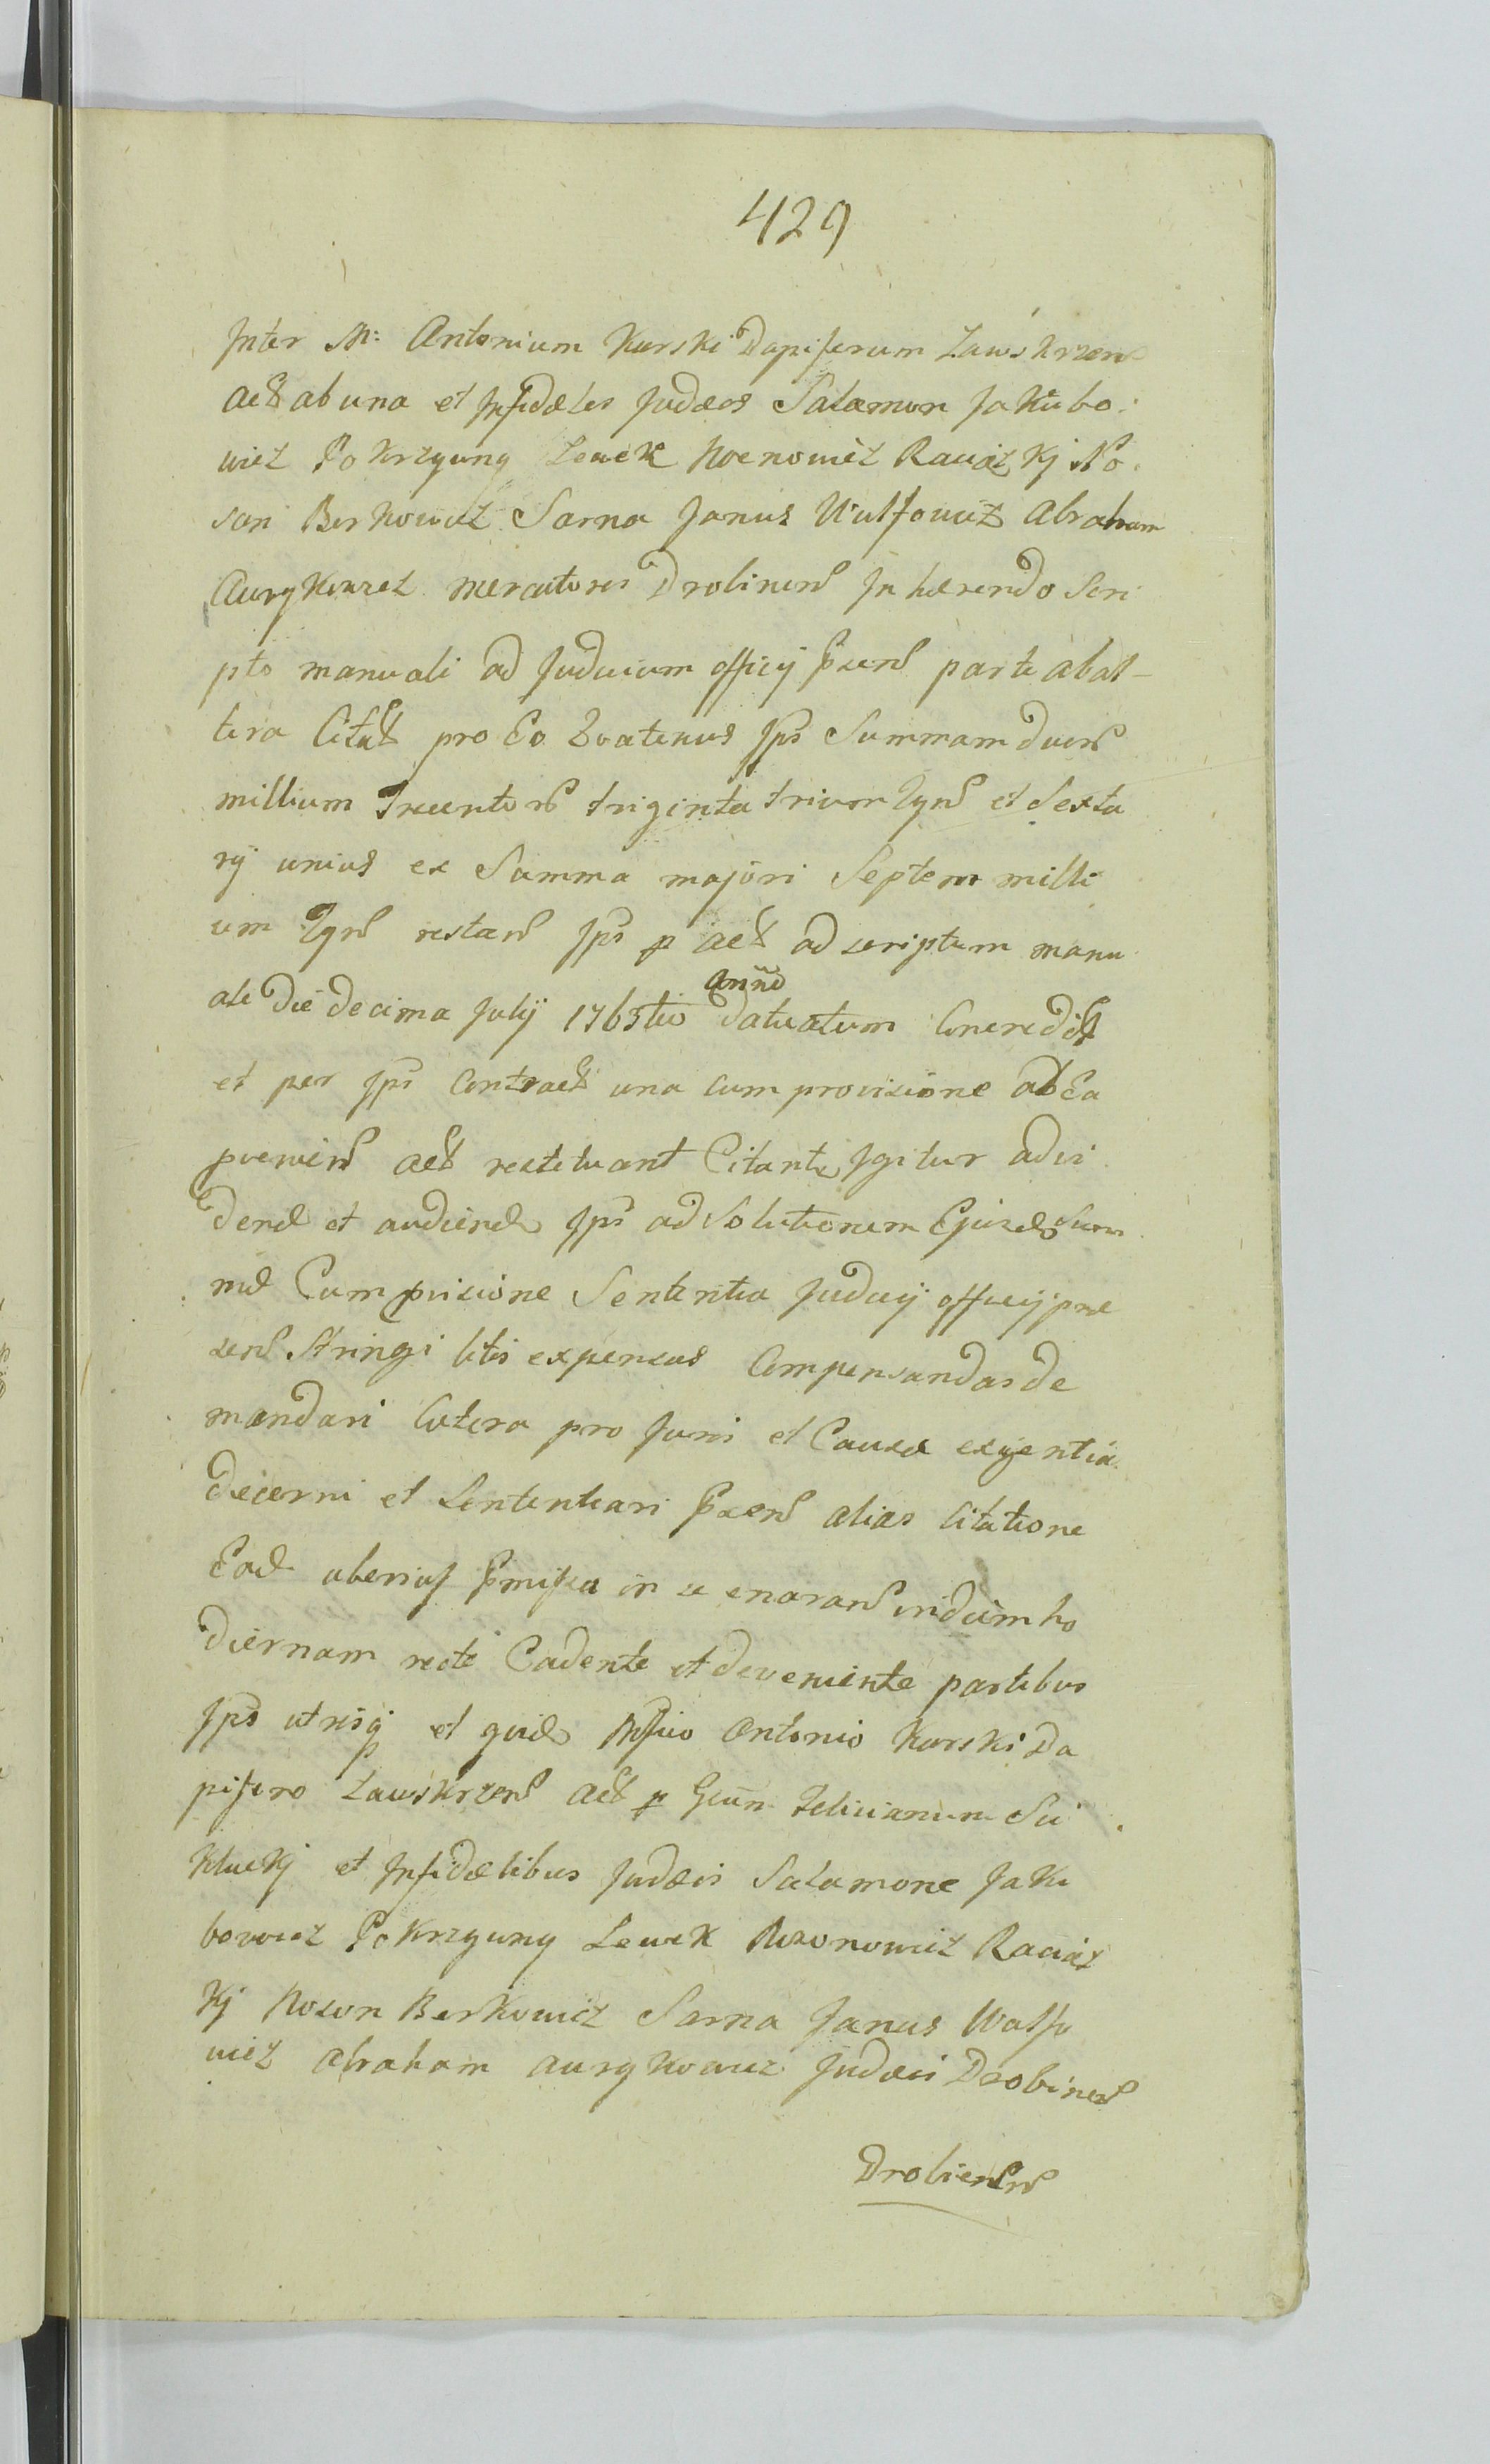 429
Inter M: Antonium Karski Dapiferum Zawskrzen
Act ab una et Infidæles Judæos Salamon Jakubo
wicz Pokrzywny Lewek Raciąz Kj No
san Berkowicz Sarna Janus Wulfowicz Abraham
mercatores Drobinens Inhærendo Scri
pto manuali ad Judicium officij Præsens parte ab al-
tera Citat pro Eo Quatenus Ips Summam duor
millium Trecentor triginta trium flnor et Sexta
rij unius ex Summa majori Septem milli
um flnor restan Ips p act ad scriptum manu
ale die decima Julij 1765tio Anno datuatum Concredit
et per Ips Contract una cum provisione ab Ea
pvenien act restituant Citantr Igitur ad vi
dend et audiend Ips ad Solutionem Ejusd Sum
mæ Cum pvisione Sententia Judicij officij præ
sens Stringi litis expensas Compensandas de
mandari Cætera pro Juris et Causæ exigentia
decerni et Sententiari Præsens alias Citatione
Ead uberius Pmissa in se enaran in diem ho
diernam recte Cadente et deveniente partibus
Ips utrisq et quid Mfico Antonio Karski Da
pifero Zawskrzens Act p Gsum Felicianum Su
Kluckj et Infidælibus Judæis Salamone Jaku
bowicz Pokrzywny Lewek Raciąz
Kj Noson Berkowicz Sarna Janus Wulfo
wicz Abraham Judæis Drobinens
Drobinens